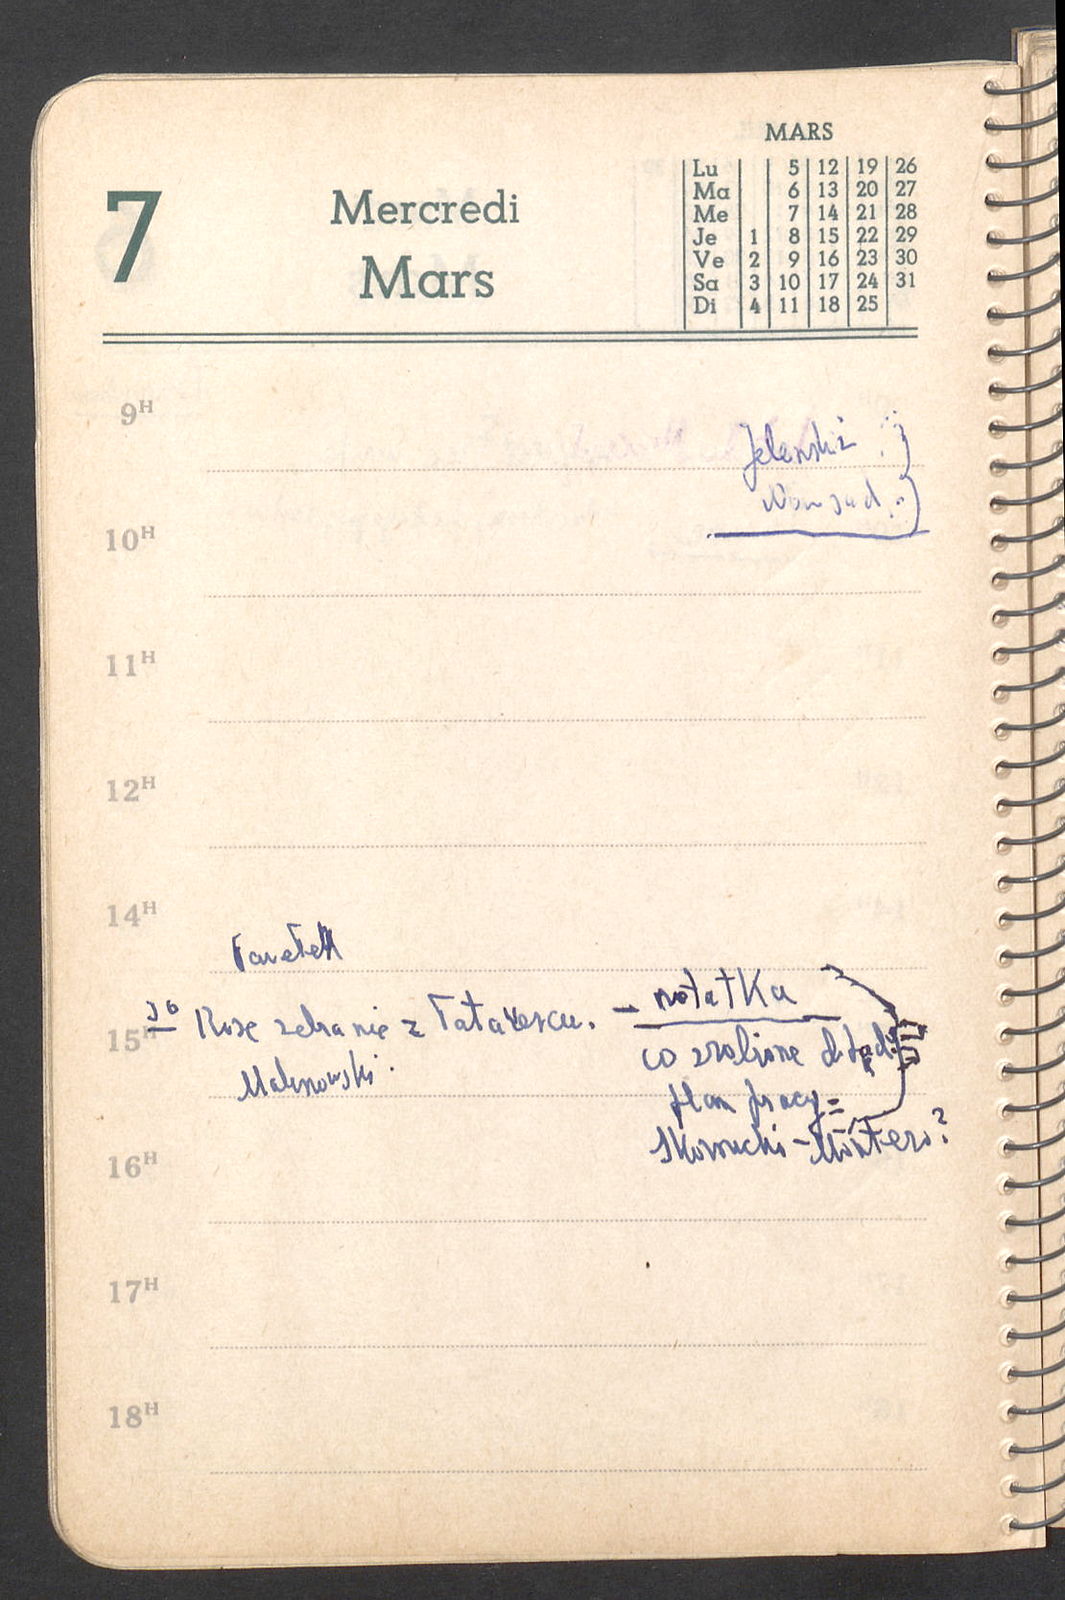 MARS
Lu 5 12 19 26
Ma 6 13 20 27
Me 7 14 21 28
Je 1 8 15 22 29
Ve 2 9 16 23 30
Sa 3 10 17 24 31
Di 4 11 18 25
7 Mercredi
Mars
9H
Jeleński
10H
11H
12H
14H
15H
zebranie z Tatarescu. - notatka
co zrobione
Malinowski.
plan pracy =
16H
17H
18H